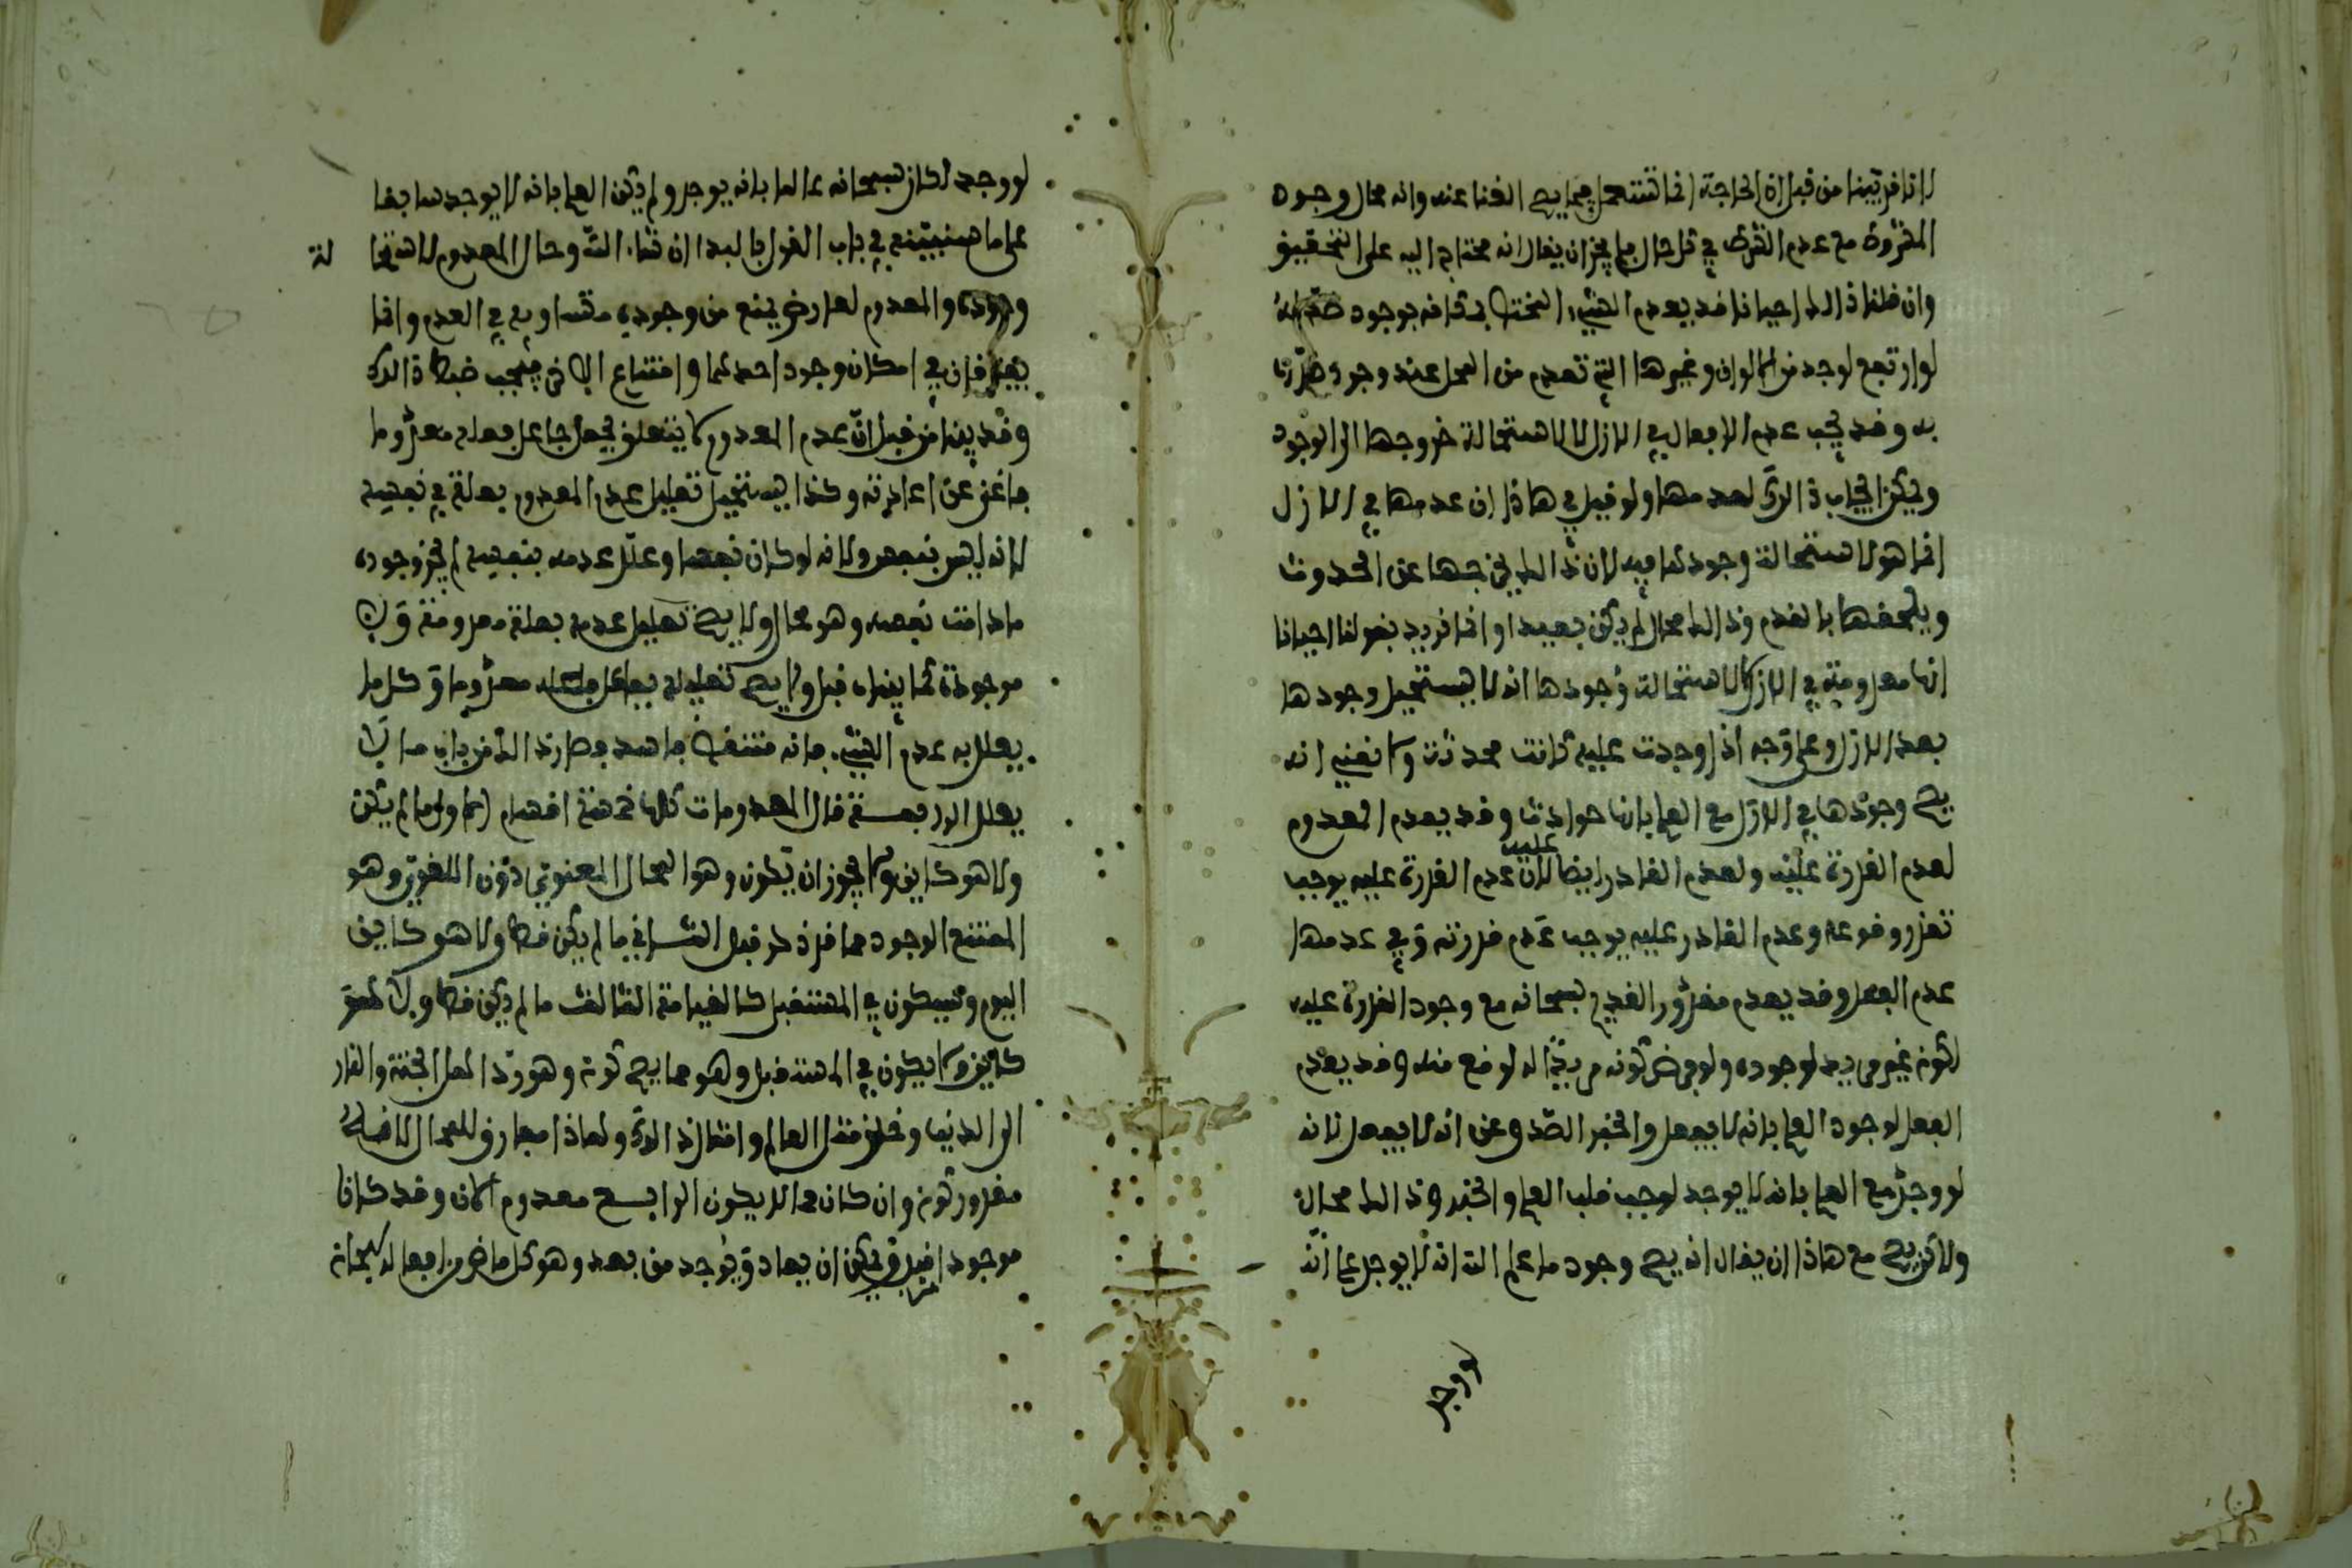 لانا قد بينا من قبل ان الحاجة انما تستعمل فيما يصح الغنا عنه وانه محال وجود
المشروط مع عدم الشرط في كل حال فلم يجز ان يقال انه محتاج اليه على التحقيق
وان قلنا ذالك احيانا قد يعدم الشيء المختص بمكانه بوجود ضد له
لو ارتفع لوجد من الالوان وغيرها التي تعدم من المحل عند وجود ضدنا
به وقد يجب عدم الافعال في الازل لا لاستحالة خروجها الى الوجود
ويكن ايجاب ذالك لعدمها ولو قيل في هاذا ان عدمها في الازل
انما هو لاستحالة وجودها فيه لان ذالك يخرجها عن الحدوث
ويلحقها بالقدم وذالك محال لم يكن بعيدا وانما نريد بقولنا احيانا
انها معدومة في الازل لا لاستحالة وجودها انه لا يستحيل وجودها
بعد الازل وعلى وجه اذا وجدت عليه كانت محدثة ولا نعني انه
يصح وجودها في الازل مع العلم بانها حوادث وقد يعدم المعدوم
لعدم القدرة عليه ولعدم القادر عليه ايضا لان عدم القدرة عليه يوجب
تعذر وقوعه وعدم القادر عليه يوجب عدم قدرته وفي عدمها
عدم الفعل وقد يعدم مقدور القديم سبحانه مع وجود القدرة عليه
لكونه غير مريد لوجوده ولو فرض كونه مريدا له لوقع منه وقد يعدم
الفعل لوجود العلم بانه لا يفعل والخبر الصدق عن انه لا يفعل لانه
لو وجد مع العلم بانه لا يوجد لوجب قلب العلم والخبر وذالك محال
ولاكن يصح مع هاذا ان يقال انه يصح وجود ما علم الله انه لا يوجد على انه
لو وجد
لو وجد لكان سبحانه عالما بانه يوجد ولم يكن العلم بانه لا يوجد سابقا
على ما سنبينه في باب القول بالبدا ان شاء الله وحال المعدوم لاستحا لة
وجوده والمعدوم لعارض يمنع من وجوده متساويه في العدم وانما
يفترقان في امكان وجود احدهما وامتناع الاخر فيجب ضبط ذالك
وقد بينا من قبل ان عدم المعدوم لا يتعلق بجعل جاعل جعله معدوما
فاغنى عن اعادته وكذا يستحيل تعليل عدم المعدوم بعلة في نفسه
لانه ليس بنفس ولانه لو كان نفسا وعلل عدمه بنفسه لم يجز وجوده
ما دامت نفسه وهو محال ولا يصح تعليل عدمه بعلة معدومة ولا
موجودة لما بيناه قبل ولا يصح تعليله بفاعل جعله معدوما وكل ما
يعلل به عدم الشيء فانه منتقض فاسد وصار ذالك من باب ما لا
يعلل الرابعة قال المعدومات كلها خمسة اقسام اما ولها ما لم يكن
ولا هو كاين ولا يجوز ان يكون وهو المحال المعنوي دون اللغوي وهو
الممتنع الوجود مما قد ذكر قبل الثاني ما لم يكن قط ولا هو كاين
اليوم وسيكون في المستقبل كالقيامة الثالث ما لم يكن قط ولا هو
كاين ولا يكون في المستقبل وهو مما يصح كونه وهو رد اهل الجنة والنار
الى الدنيا وخلق مثل العالم وامثال ذالك ولهاذا مفارق للمحال لانه
مقدور كونه وان كان مما لا يكون الرابع معدوم الان وقد كان
موجودا قبل ويمكن ان يعاد ويوجد من بعد وهو كل ماض من افعاله سبحانه